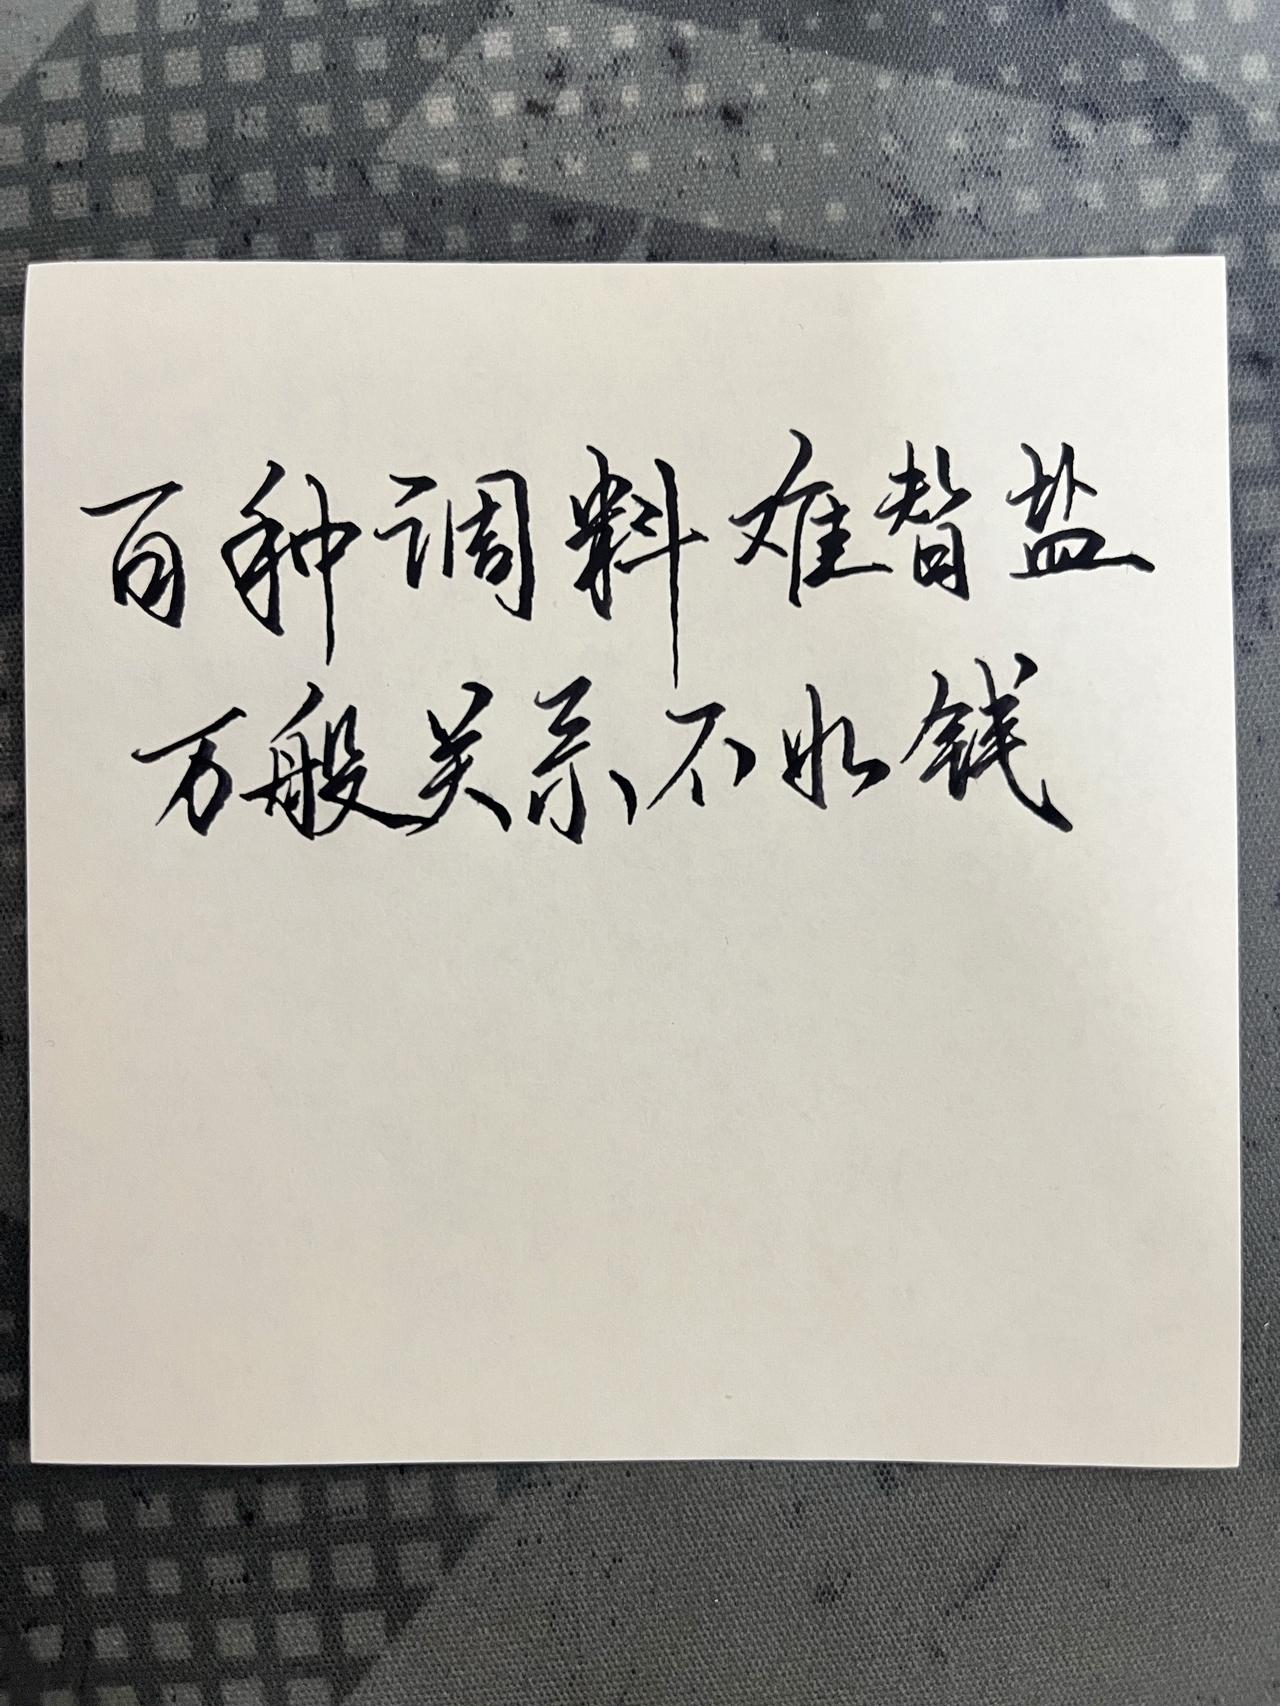 百种调料难替盐
万般关系不如钱